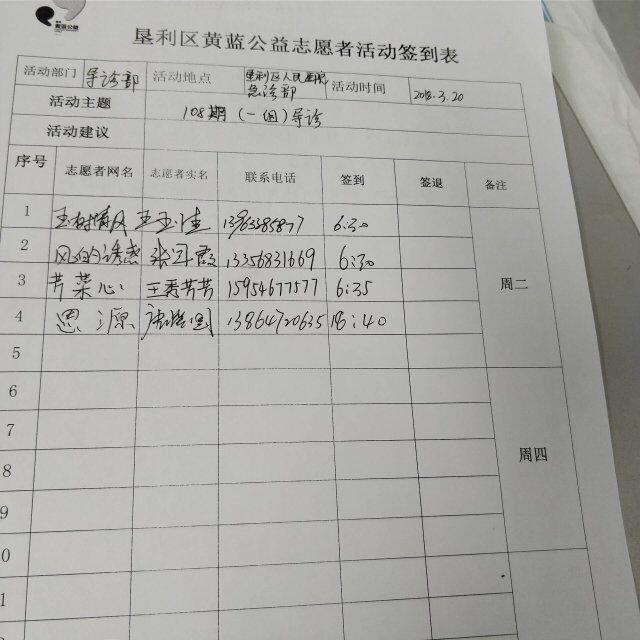 黄蓝公益
垦利区黄蓝公益志愿者活动签到表
活动部门 导诊部 活动地点 垦利区人民医院急诊部 活动时间 2018.3.20
活动主题 108期(一组)导诊
活动建议
序号 志愿者网名 志愿者实名 联系电话 签到 签退 备注
1 玉树情风 王玉佳 6:30
2 风的诱惑 13356831669 6:30
3 芹菜心 王秀芳 15954677577 6:35
4 思源 13864720635 18:40
周二
5
6
7
8
周四
9
0
1